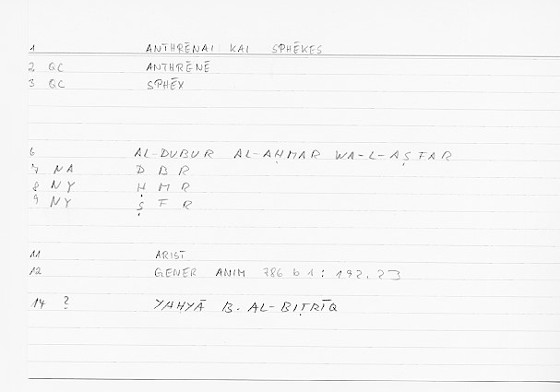 1 ANTHRĒNAI KAI SPHĒKES
2 GC ANTHRĒNĒ
3 GC SPHĒX
6 AL-DUBUR AL-AḤMAR WA-L-AṢFAR
7 NA D B R
8 NY Ḥ M R
9 NY Ṣ F R
11 ARIST
12 GENER ANIM 786 b 1 : 192.23
14 ? YAḤYĀ B. AL-BIṬRĪQ